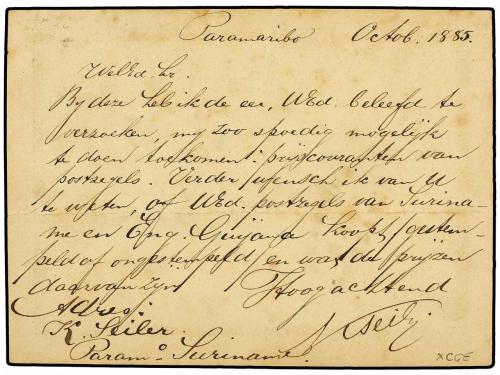 Paramaribo Octob. 1885.
WelEd. Hr.
By deze heb ik de eer, UEd. beleefd te
verzoeken, my zoo spoedig mogelijk
te doen toekomen: prijscouranten van
postzegels. Verder wensch ik van U
te weten, of UEd. postzegels van Surina-
me en Eng. Guijana koopt, gestem-
peld of ongestempeld en wat de prijzen
daarvan zijn.
Hoogachtend
Adres:
K. Seiler.
Param=o Suriname.
KSeiler
XCGE